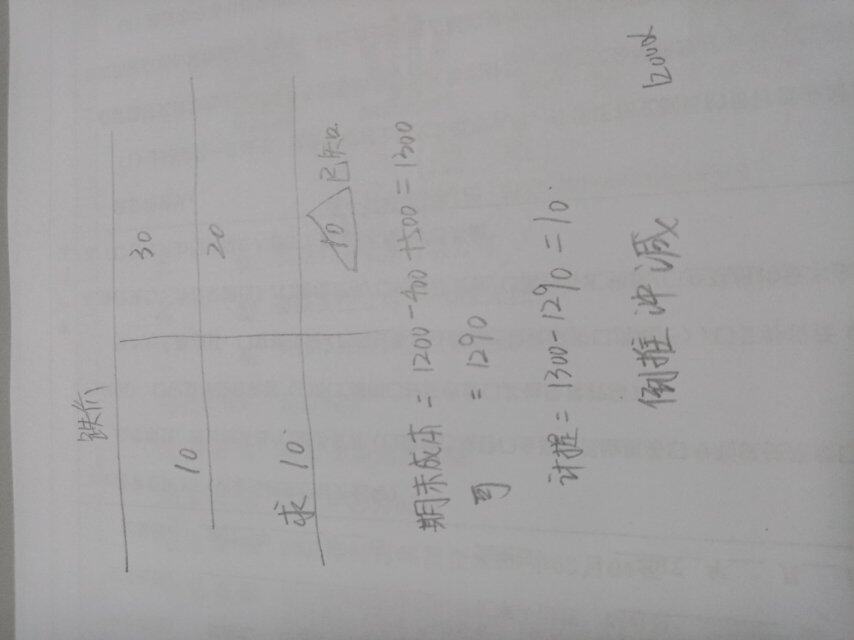 跌价
30
10 20
求 10 10 已知
期末成本 = 1200-400+500=1300
可 = 1290
计提 = 1300-1290=10.
倒推冲减